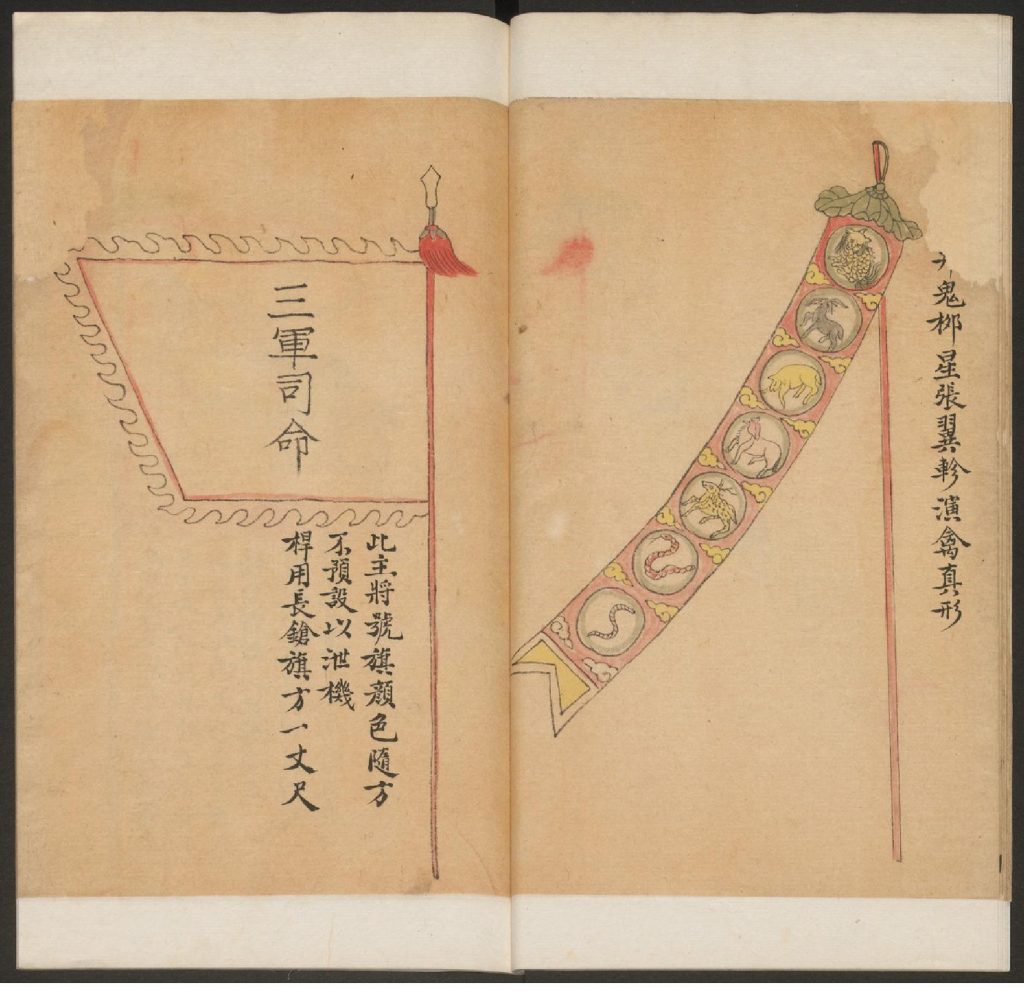 鬼柳星張翼軫演禽真形
三軍司命
此主將號旗顏色隨方
不預設以泄機
桿用長鎗旗方一丈尺